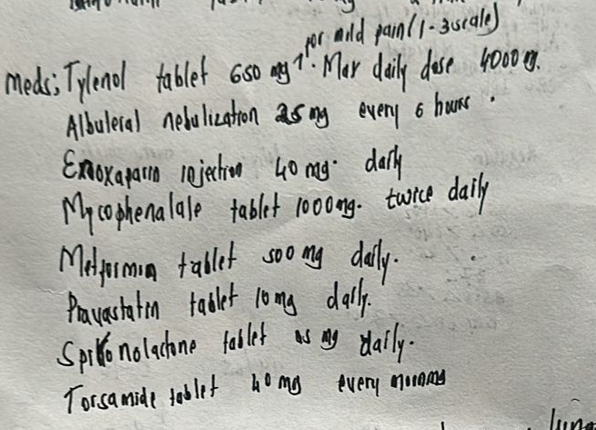 for mild pain (1-3 scale)
Meds; Tylenol tablet 650 mg. Max daily dose 4000 g.
Albuleral nebulization 25 mg every 6 hours.
Enoxaparin injection 40 mg. daily
Mycophenalale tablet 1000mg. twice daily
Metformin tablet 500 mg daily.
Pravastatin tablet 10mg daily.
Spironolactone tablet mg daily.
Torsamide tablet 40 mg every morning
lung